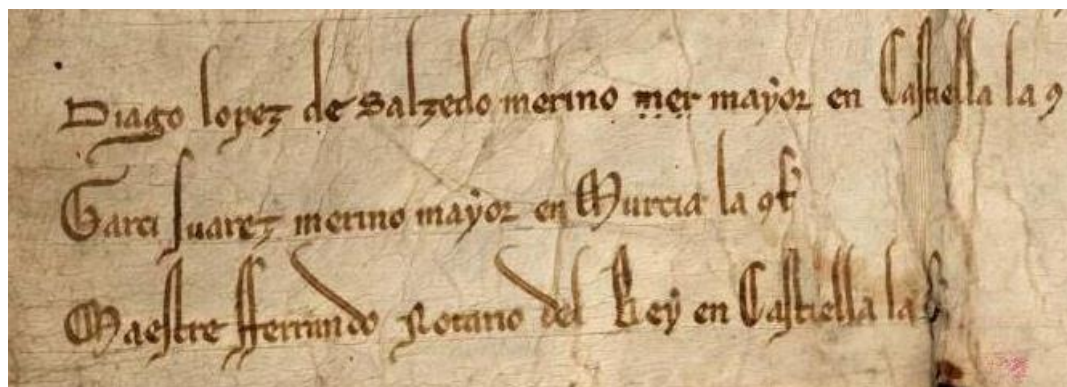 Diago lopez de Salzedo merino mer mayor en Castiella la 9
Garci Suarez merino mayor en Murcia la 9f
Maestre fferrando Notario del Rey en Castiella la